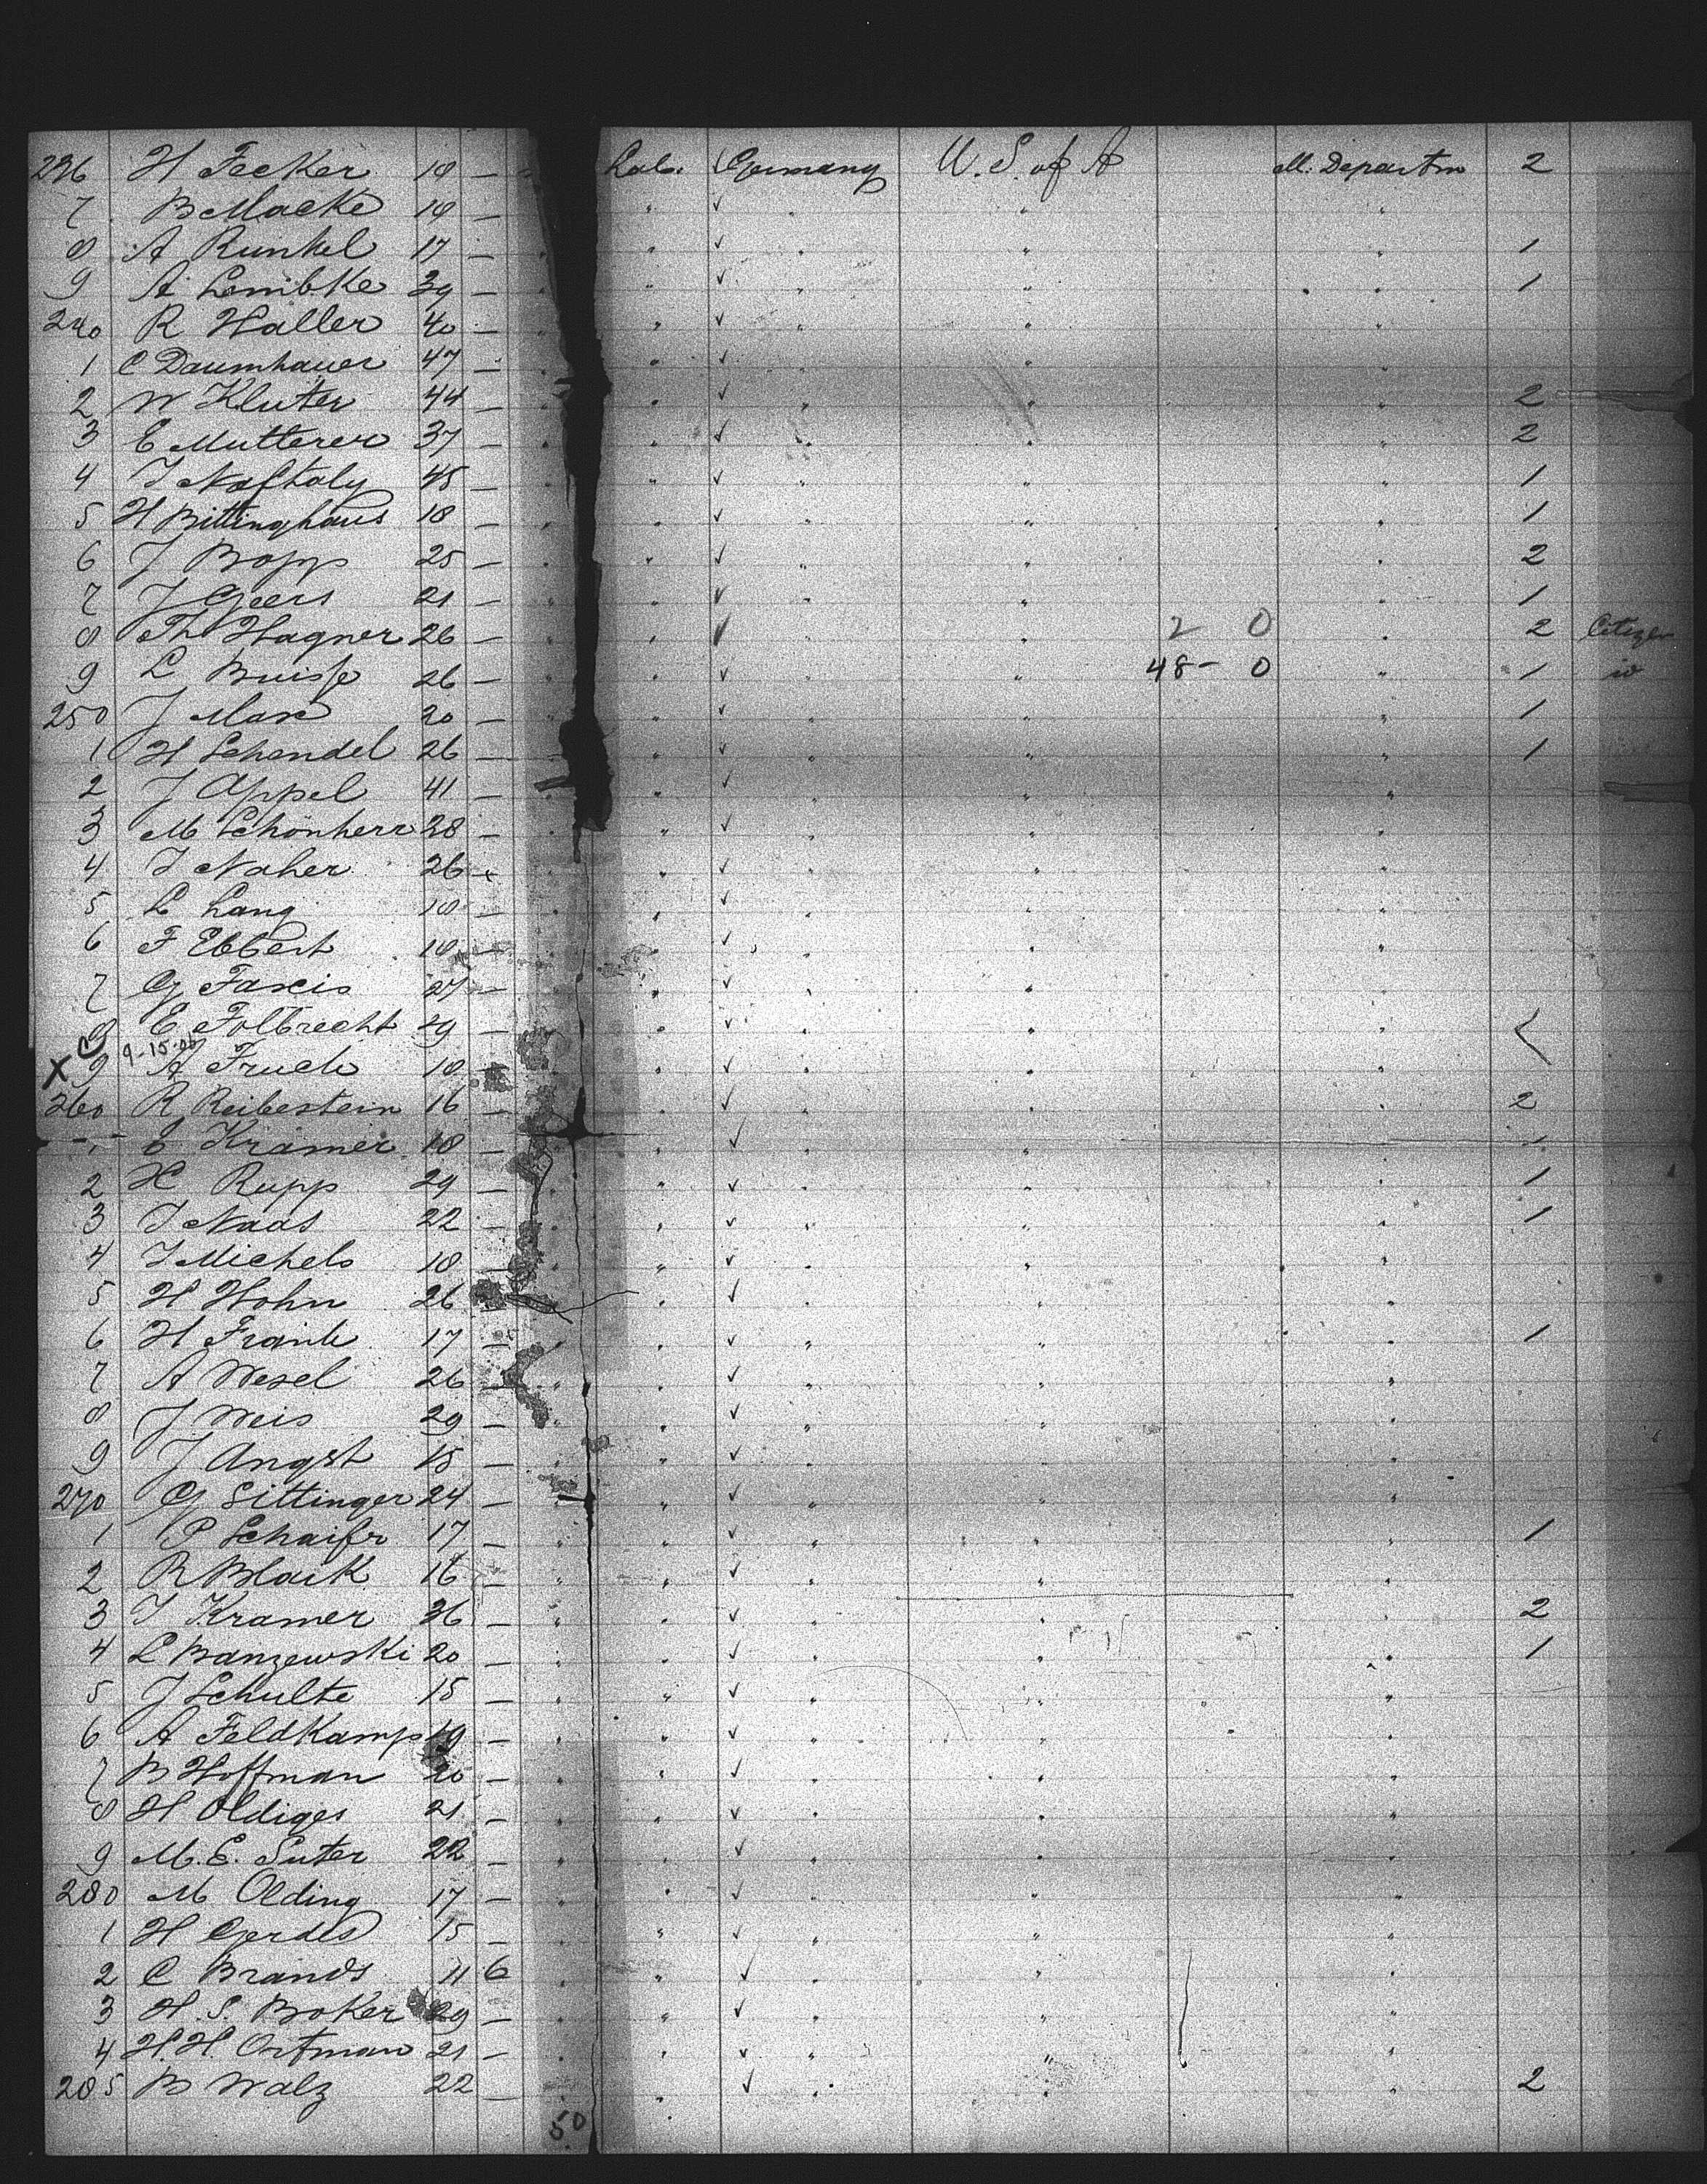 236 H Fecker 18 — Lab. Germany U.S. of A M. Departm 2
7 B Macke 18 — " ✓ " " "
8 A Runkel 17 — " ✓ " " " 1
9 A Lembke 39 — " ✓ " " " 1
240 R Haller 40 — " ✓ " " "
1 C Daumhauer 47 — " ✓ " " "
2 W Kluter 44 — " ✓ " " " 2
3 E Mutterer 37 — " ✓ " " " 2
4 J Naftaly 45 — " ✓ " " " 1
5 H Bittinghaus 18 — " ✓ " " " 1
6 J Bopp 25 — " ✓ " " " 2
7 J Geers 21 — " ✓ " " " 1
8 Th Hagner 26 — " ✓ " " 2 0 " 2 Citizen
9 L 26 — " ✓ " " 48- 0 " 1
250 J Marx 20 — " ✓ " " " 1
1 H Schendel 26 — " ✓ " " " 1
2 J Appel 41 — " ✓ " " "
3 M Schönherr 38 — " ✓ " " "
4 J Naher 26 " ✓ " " "
5 L Lang 18 — " ✓ " " "
6 F Ebbert 18 — " ✓ " " "
7 G 27 — " ✓ " " "
8 E Folbrecht 29 — " ✓ " " "
9-15-00
X 9 A Fruch 18 — " ✓ " " "
260 R Reibestein 16 — " ✓ " " " 2
Kramer 18 — " ✓ " " "
2 H Rupp 29 — " ✓ " " " 1
3 J Naas 22 — " ✓ " " " 1
4 J Michels 18 — " ✓ " " "
5 H Hohn 26 — " ✓ " " "
6 H Frank 17 — " ✓ " " " 1
7 A Wesel 26 — " ✓ " " "
8 J Weis 29 — " ✓ " " "
9 J Angst 15 — " ✓ " " "
270 G Sittinger 24 — " ✓ " " "
1 P Schaifr 17 — " ✓ " " " 1
2 R Blaik 16 — " ✓ " " "
3 J Kramer 36 — " ✓ " " " 2
4 L Banzewski 20 — " ✓ " " " 1
5 J Schulte 15 — " ✓ " " "
6 A Feldkamp 19 — " ✓ " " "
7 B Hoffman 20 — " ✓ " " "
8 H Oldiges 21 — " ✓ " " "
9 M.E. Suter 22 — " ✓ " " "
280 M Olding 17 — " ✓ " " "
1 H Gerdes 15 — " ✓ " " "
2 C Brands 11 6 " ✓ " " "
3 H.S. Boker 29 — " ✓ " " "
4 H.H. Ortman 21 — " ✓ " " "
285 B Walz 22 — " ✓ " " " 2
50